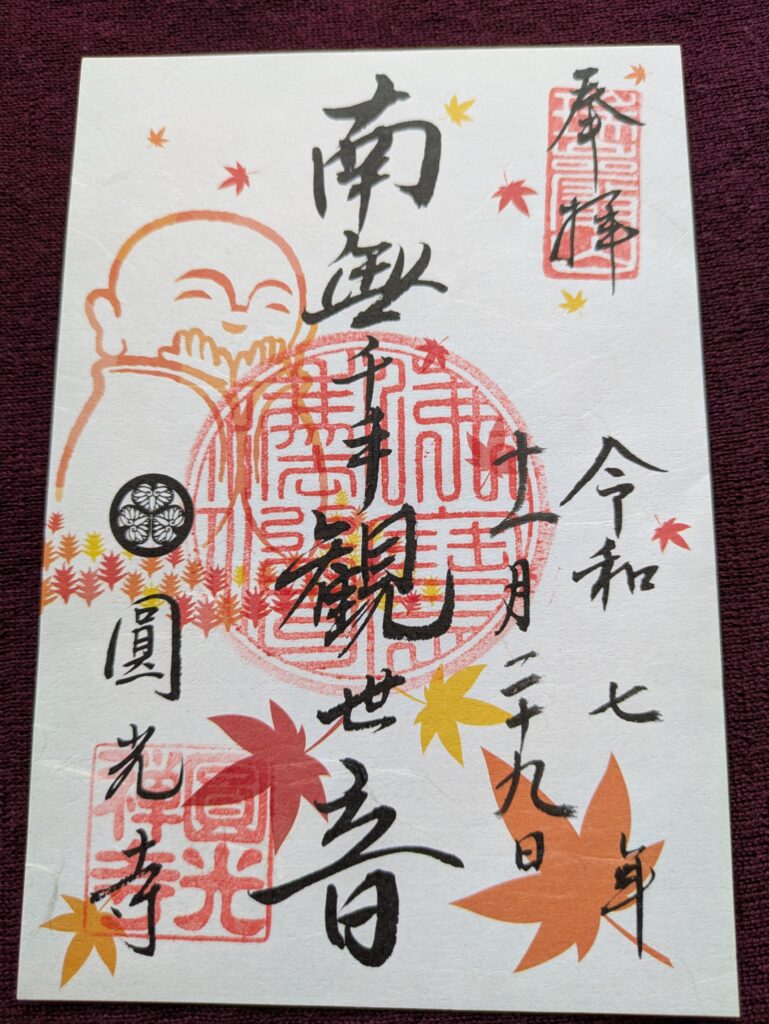 奉拝
令和七年
十一月二十九日
南無千手観世音
圓光寺
圓光
禅寺